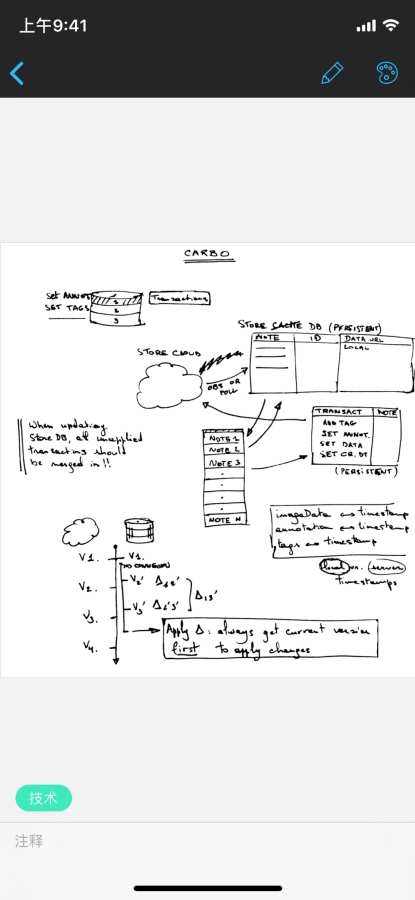 上午9:41
CARBO
Set ANNOT.
SET TAGS
1
2
3
Transactions
STORE CACHE DB (PERSISTENT)
NOTE
ID
DATA URL
LOCAL
STORE CLOUD
OBS OR
POLL
TRANSACT
NOTE
ADD TAG
SET ANNOT.
SET DATA
SET CR. DT
(PERSISTENT)
When updating
Store DB, all unapplied
transactions should
be merged in!!
NOTE 1
NOTE 2
NOTE 3
NOTE N
imageData as timestamp
annotation as timestamp
tags as timestamp
local vs. server
timestamps
V1.
V1.
NO CHANGES
V2.
V2'
V3.
V3'
Δ13'
V4.
Apply Δ: always get current version
first to apply changes
技术
注释